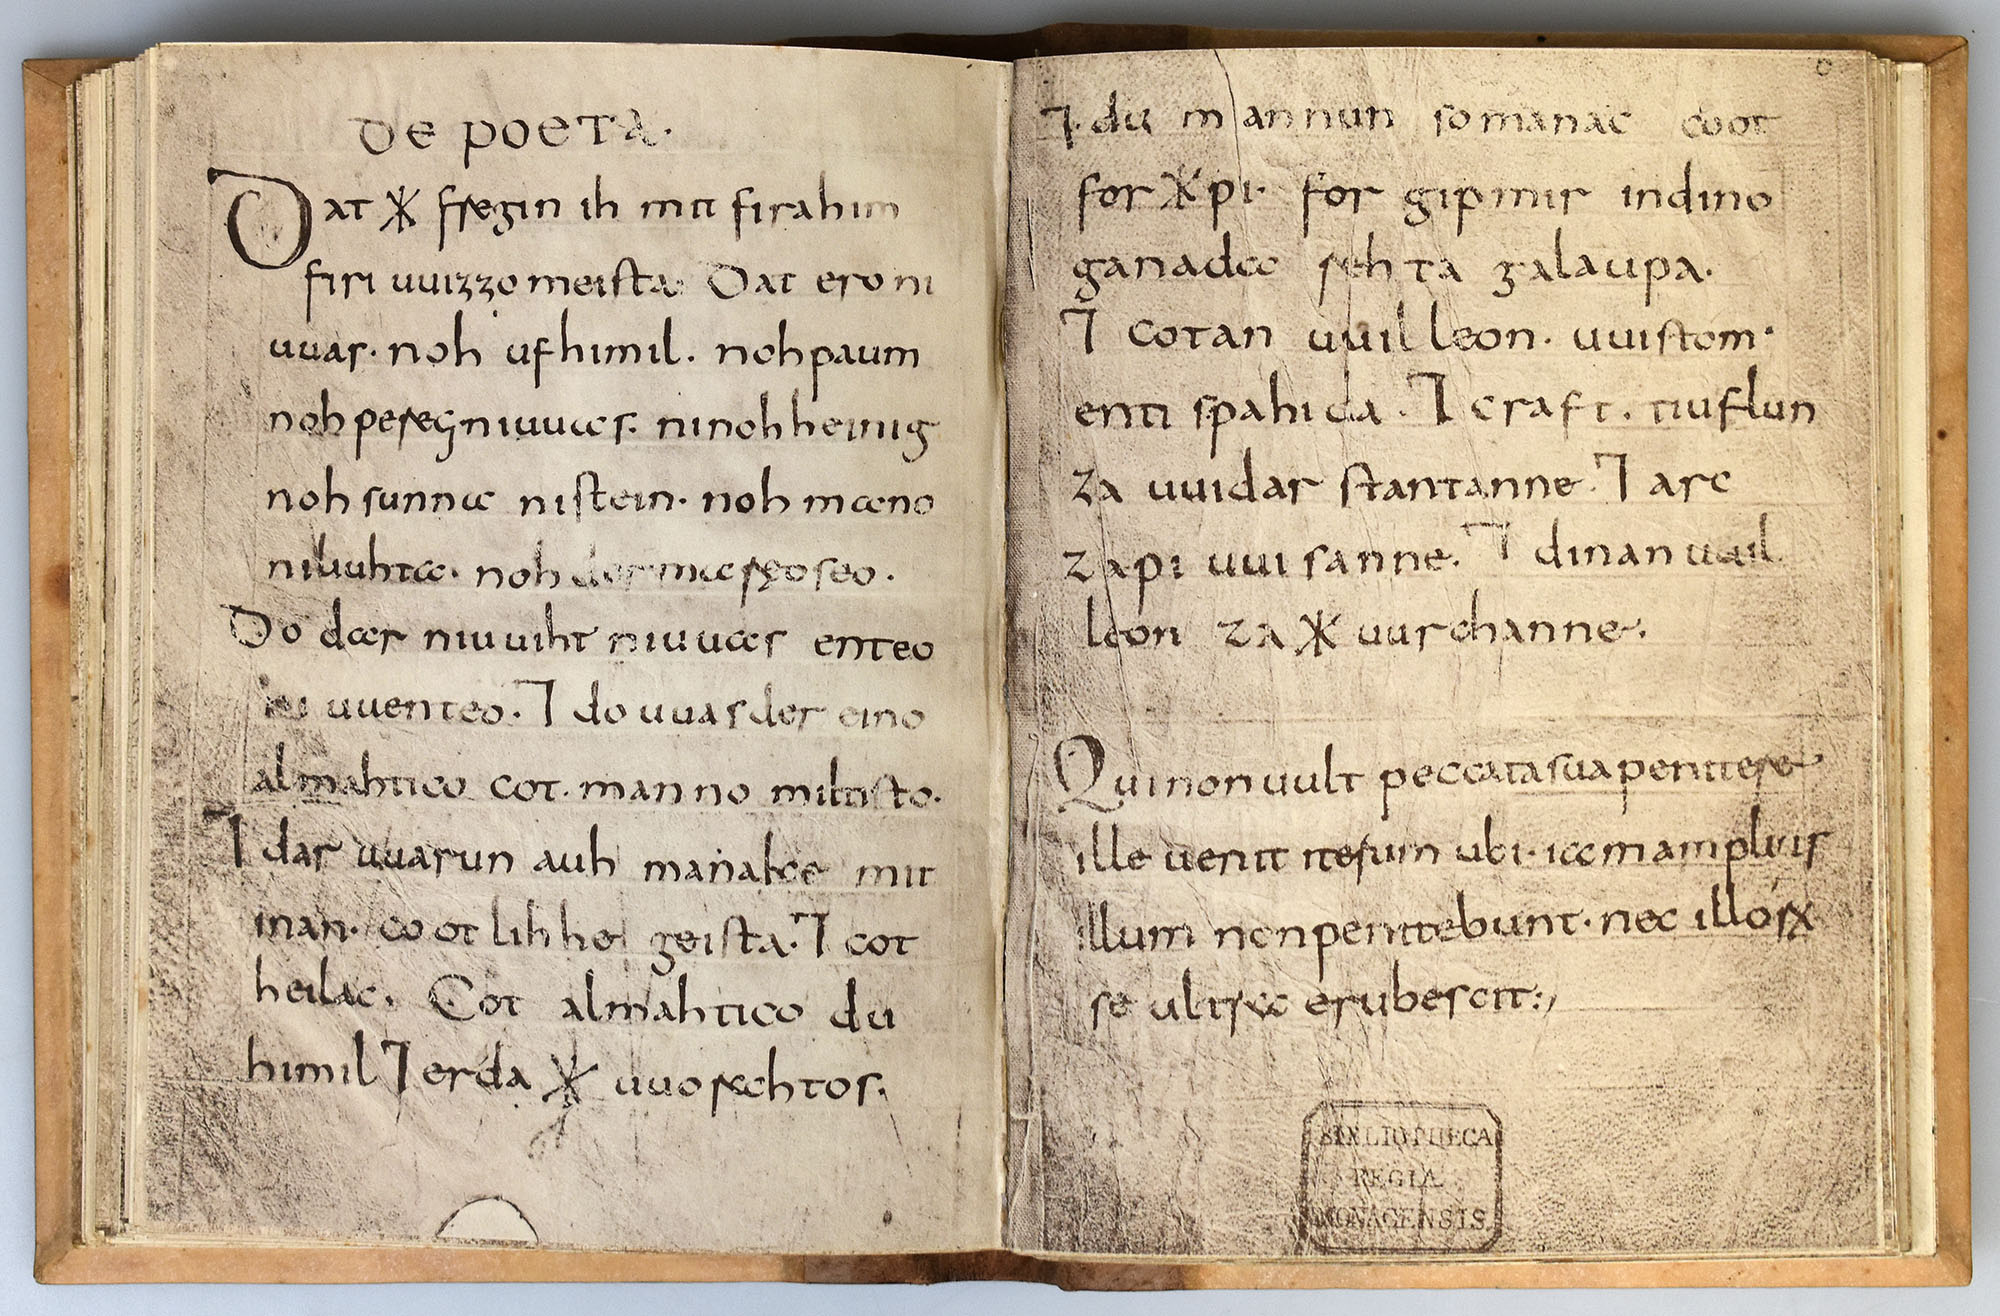 De poeta.
Dat ᚷ fregin ih mit firahim
firi uuizzo meista. Dat ero ni
uuas. noh ufhimil. noh paum
noh peregniuuas. ninohheinig
noh sunna nistein. noh mano
niliuhta. noh der maręoseo.
Do dar niuuiht niuuas enteo
ni uuenteo. ⁊ do uuas der eino
almahtico cot. manno miltisto.
⁊ dar uuarun auh manake mit
inan. cootlihhe geista. ⁊ cot
heilac. Cot almahtico du
himil ⁊ erda ᚷ uuorahtos.
⁊ du mannun so manac coot
for ᚷpi. for gip mir indino
ganada rehta galaupa.
⁊ cotan uuilleon. uuistom.
enti spahida. ⁊ craft. tiuflun
za uuidar stantanne. ⁊ arc
zapi uuisanne. ⁊ dinan uuil
leon za ᚷ uurchanne.
Qui non uult peccata sua penitere
ille uenit iterum ubi. iam amplius
illum non penitebunt. nec illorꝝ
se ultra erubescit:,
BIBLIOTHECA
REGIA
MONACENSIS